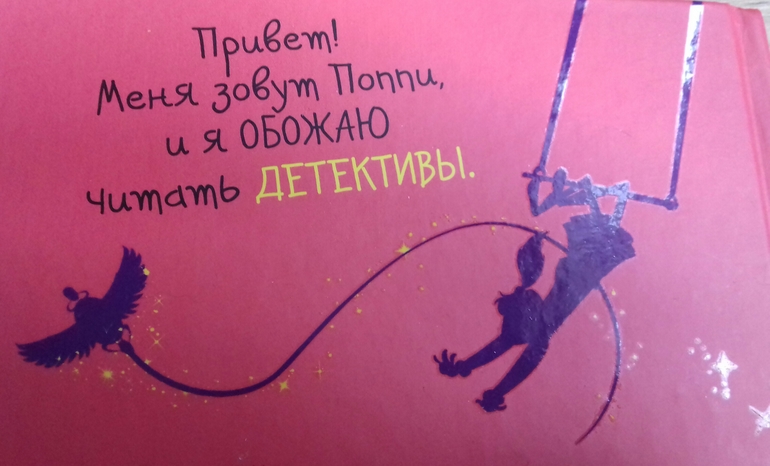 Привет!
Меня зовут Поппи,
и я ОБОЖАЮ
читать ДЕТЕКТИВЫ.